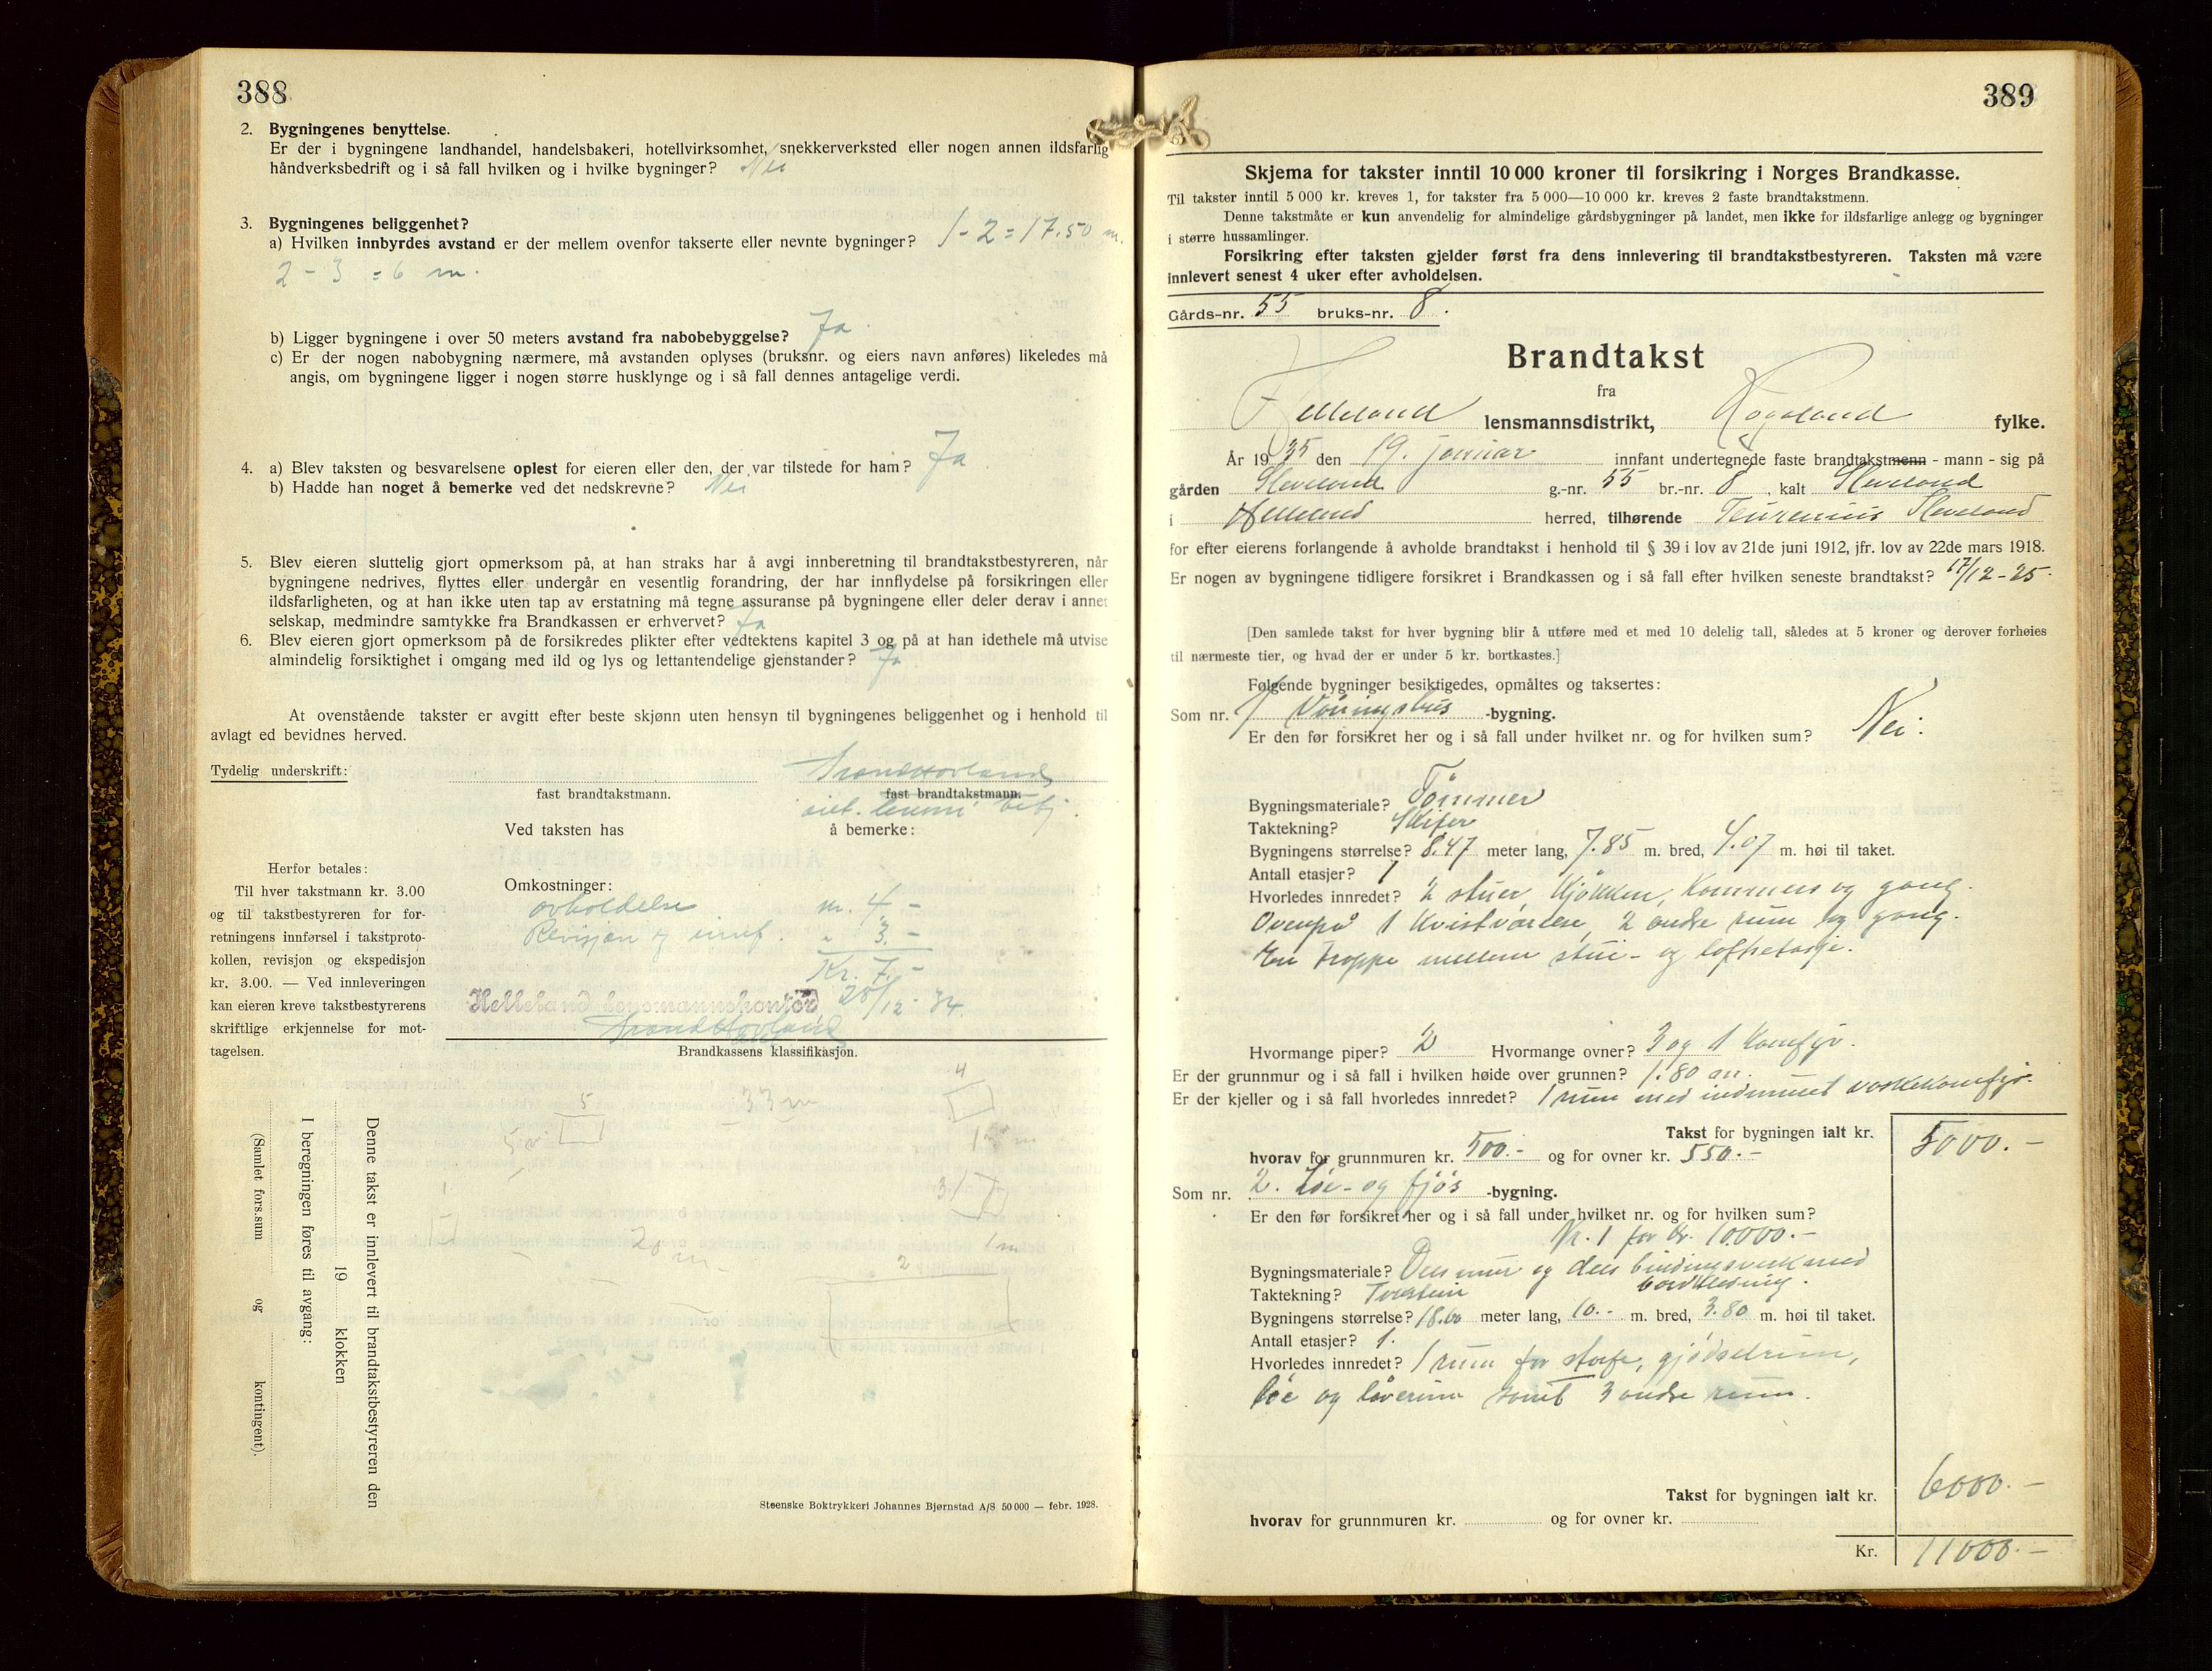 388
2. Bygningenes benyttelse.
Er der i bygningene landhandel, handelsbakeri, hotellvirksomhet, snekkerverksted eller nogen annen ildsfarlig
håndverksbedrift og i så fall hvilken og i hvilke bygninger? Nei
3. Bygningenes beliggenhet?
a) Hvilken innbyrdes avstand er der mellem ovenfor takserte eller nevnte bygninger? 1 - 2 = 17.50 m.
2 - 3 = 6 m.
b) Ligger bygningene i over 50 meters avstand fra nabobebyggelse? Ja
c) Er der nogen nabobygning nærmere, må avstanden oplyses (bruksnr. og eiers navn anføres) likeledes må
angis, om bygningene ligger i nogen større husklynge og i så fall dennes antagelige verdi.
4. a) Blev taksten og besvarelsene oplest for eieren eller den, der var tilstede for ham? Ja
b) Hadde han noget å bemerke ved det nedskrevne? Nei
5. Blev eieren sluttelig gjort opmerksom på, at han straks har å avgi innberetning til brandtakstbestyreren, når
bygningene nedrives, flyttes eller undergår en vesentlig forandring, der har innflydelse på forsikringen eller
ildsfarligheten, og at han ikke uten tap av erstatning må tegne assuranse på bygningene eller deler derav i annet
selskap, medmindre samtykke fra Brandkassen er erhvervet? Ja
6. Blev eieren gjort opmerksom på de forsikredes plikter efter vedtektens kapitel 3 og på at han idethele må utvise
almindelig forsiktighet i omgang med ild og lys og lettantendelige gjenstander? Ja
At ovenstående takster er avgitt efter beste skjønn uten hensyn til bygningenes beliggenhet og i henhold til
avlagt ed bevidnes herved.
Tydelig underskrift:
fast brandtakstmann. fast brandtakstmann.
Ved taksten has å bemerke:
Herfor betales:
Til hver takstmann kr. 3.00
og til takstbestyreren for for-
retningens innførsel i takstproto-
kollen, revisjon og ekspedisjon
kr. 3.00. — Ved innleveringen
kan eieren kreve takstbestyrerens
skriftlige erkjennelse for mot-
tagelsen.
Omkostninger:
avholdelse 4 -
Revisjon og innf. " 3. -
Kr. 7. -
Helleland lensmannskontor 28/12 - 34.
Brandkassens klassifikasjon.
4
5 33 m
5 m
3
1
20 m
1 m
2
Denne takst er innlevert til brandtakstbestyreren den
19 klokken
I beregningen føres til avgang:
(Samlet fors.sum og kontingent).
Steenske Boktrykkeri Johannes Bjørnstad A/S 50 000 — febr. 1928.
389
Skjema for takster inntil 10 000 kroner til forsikring i Norges Brandkasse.
Til takster inntil 5 000 kr. kreves 1, for takster fra 5 000—10 000 kr. kreves 2 faste brandtakstmenn.
Denne takstmåte er kun anvendelig for almindelige gårdsbygninger på landet, men ikke for ildsfarlige anlegg og bygninger
i større hussamlinger.
Forsikring efter taksten gjelder først fra dens innlevering til brandtakstbestyreren. Taksten må være
innlevert senest 4 uker efter avholdelsen.
Gårds-nr. 55 bruks-nr. 8.
Brandtakst
fra
Helleland lensmannsdistrikt, Rogaland fylke.
År 1935 den 19. januar innfant undertegnede faste brandtakstmenn - mann - sig på
gården Slaveland g.-nr. 55 br.-nr. 8, kalt Slaveland
i Helleland herred, tilhørende Slaveland
for efter eierens forlangende å avholde brandtakst i henhold til § 39 i lov av 21de juni 1912, jfr. lov av 22de mars 1918.
Er nogen av bygningene tidligere forsikret i Brandkassen og i så fall efter hvilken seneste brandtakst? 17/12 - 25.
[Den samlede takst for hver bygning blir å utføre med et med 10 delelig tall, således at 5 kroner og derover forhøies
til nærmeste tier, og hvad der er under 5 kr. bortkastes.]
Følgende bygninger besiktigedes, opmåltes og taksertes:
Som nr. 1 Våningshus -bygning.
Er den før forsikret her og i så fall under hvilket nr. og for hvilken sum? Nei.
Bygningsmateriale? Tømmer
Taktekning? Skifer
Bygningens størrelse? 8.47 meter lang, 7.85 m. bred, 4.07 m. høi til taket.
Antall etasjer? 1
Hvorledes innredet? 2 stuer, kjøkken, kammers og gang.
Ovenpå 1 kvistværelse, 2 andre rum og gang.
En trappe mellem stue- og loftsetasje.
Hvormange piper? 2 Hvormange ovner? 3 og 1 komfyr.
Er der grunnmur og i så fall i hvilken høide over grunnen? 1.80 m.
Er der kjeller og i så fall hvorledes innredet? 1 rum med indmuret vaskekomfyr.
Takst for bygningen ialt kr. 5000.-
hvorav for grunnmuren kr. 500.- og for ovner kr. 550.-
Som nr. 2. Løe- og fjøs -bygning.
Er den før forsikret her og i så fall under hvilket nr. og for hvilken sum?
Nr. 1 for kr. 10.000.-
Bygningsmateriale? Dels mur og dels bindingsverk med
bordkledning.
Taktekning? Takstein
Bygningens størrelse? 18.60 meter lang, 10.- m. bred, 3.80 m. høi til taket.
Antall etasjer? 1.
Hvorledes innredet? 1 rum for storfe, gjødselrum,
løe og låverum samt 3 andre rum.
Takst for bygningen ialt kr. 6000.-
hvorav for grunnmuren kr. og for ovner kr.
Kr. 11000.-